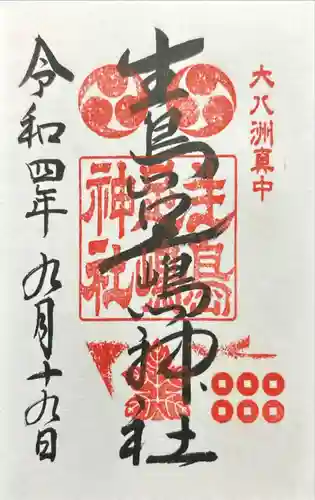 大八洲真中
生島足嶋神社
生島
足嶋
神社
令和四年九月十九日